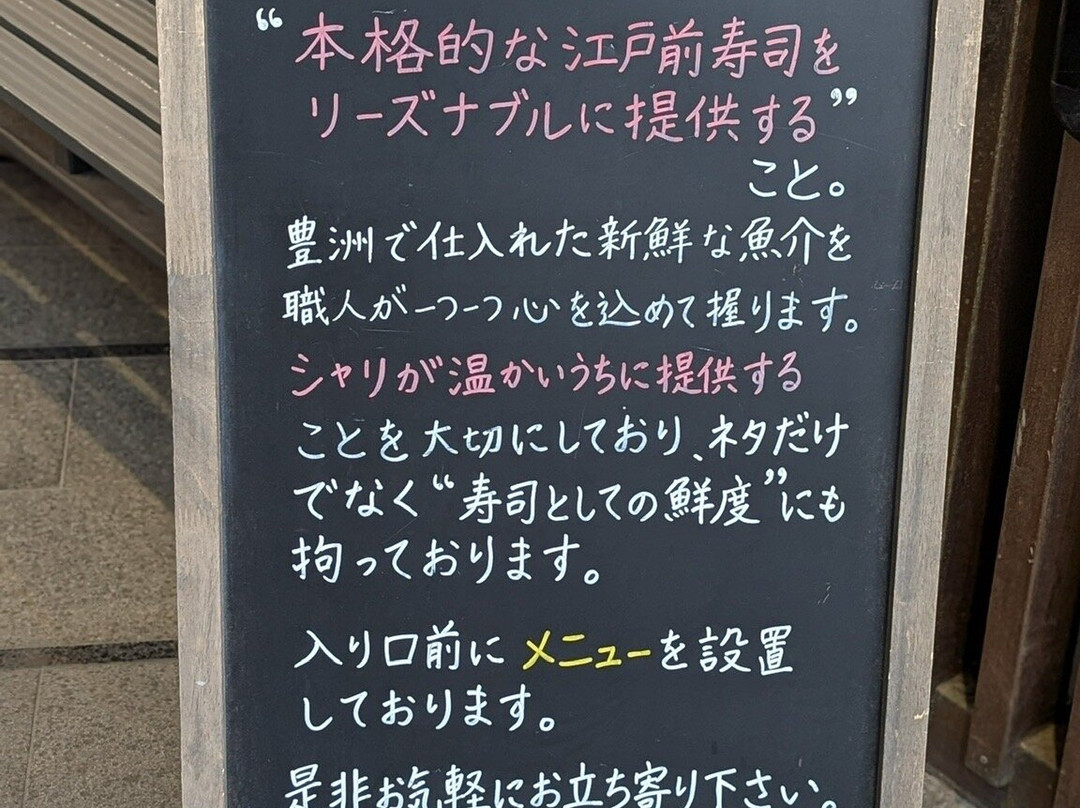 “本格的な江戸前寿司を
リーズナブルに提供する”
こと。
豊洲で仕入れた新鮮な魚介を
職人が一つ一つ心を込めて握ります。
シャリが温かいうちに提供する
ことを大切にしており、ネタだけ
でなく“寿司としての鮮度”にも
拘っております。
入り口前にメニューを設置
しております。
是非お気軽にお立ち寄り下さい。